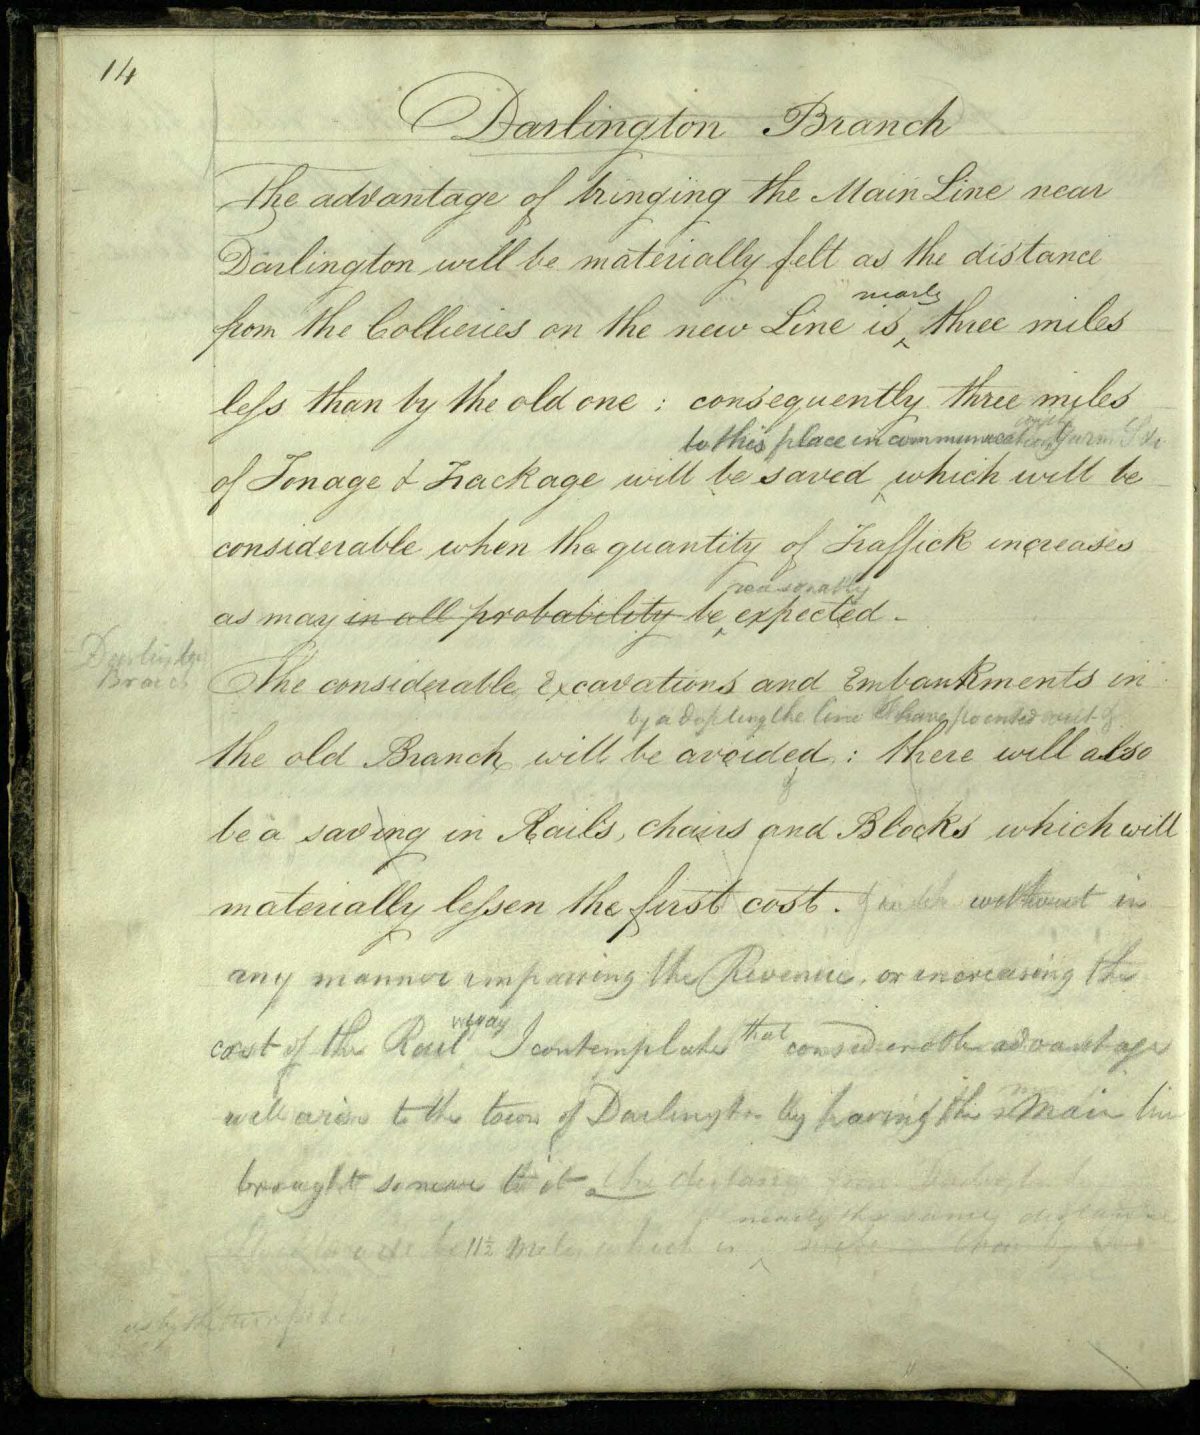 14
Darlington Branch
The advantage of bringing the Main Line near
Darlington will be materially felt as the distance
nearly
from the Collieries on the new Line is three miles
less than by the old one : consequently three miles
to this place in communication with
of Tonage & Trackage will be saved which will be
considerable when the quantity of Traffick increases
reasonably
as may in all probability be expected -
Darlington
Branch
The considerable Excavations and Embankments in
by adopting the line I have pointed out
the old Branch will be avoided : there will also
be a saving in Rails, chairs and Blocks which will
materially lessen the first cost. without in
any manner impairing the Revenue, or increasing the
way
cost of the Rail I contemplate that considerable advantages
will arise to the town of Darlington by having the Main line
brought so near to it the distance from
nearly the same distance
will be 11½ Miles which is
as by the turnpike